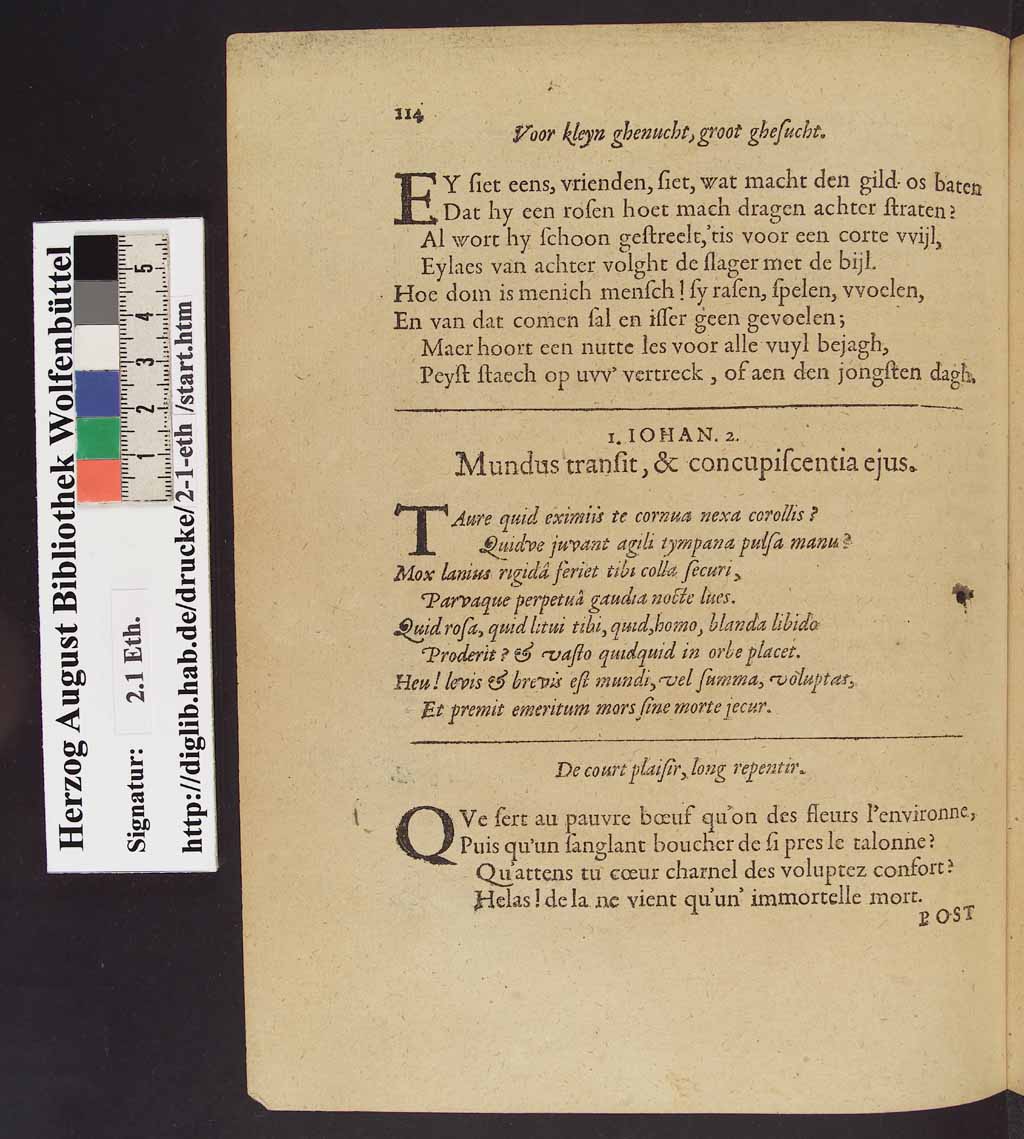 114
Voor kleyn ghenucht, groot gheſucht.
EY ſiet eens, vrienden, ſiet, wat macht den gild-os baten
Dat hy een roſen hoet mach dragen achter ſtraten?
Al wort hy ſchoon geſtreelt, 'tis voor een corte vvijl,
Eylaes van achter volght de ſlager met de bijl.
Hoe dom is menich menſch! ſy raſen, ſpelen, vvoelen,
En van dat comen ſal en iſſer geen gevoelen;
Maer hoort een nutte les voor alle vuyl bejagh,
Peyſt ſtaech op uvv' vertreck, of aen den jongſten dagh.
1. IOHAN. 2.
Mundus tranſit, & concupiſcentia ejus.
TAure quid eximiis te cornua nexa corollis?
Quidve juvant agili tympana pulſa manu?
Mox lanius rigidâ feriet tibi colla ſecuri,
Parvaque perpetuâ gaudia nocte lues.
Quid roſa, quid litui tibi, quid, homo, blanda libido
Proderit? & vaſto quidquid in orbe placet.
Heu! levis & brevis eſt mundi, vel ſumma, voluptas,
Et premit emeritum mors ſine morte jecur.
De court plaiſir, long repentir.
QVe ſert au pauvre bœuf qu'on des fleurs l'environne,
Puis qu'un ſanglant boucher de ſi pres le talonne?
Qu'attens tu cœur charnel des voluptez confort?
Helas! de la ne vient qu'un' immortelle mort.
POST
Herzog August Bibliothek Wolfenbüttel
Signatur: 2.1 Eth.
http://diglib.hab.de/drucke/2-1-eth /start.htm
1 2 3 4 5